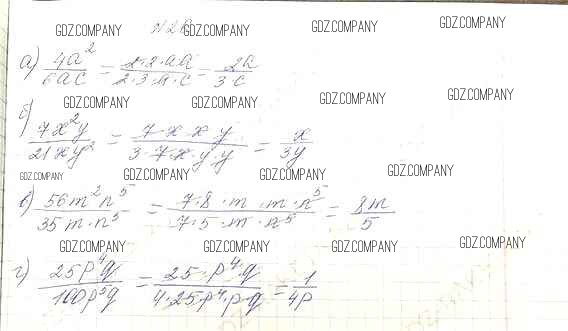 GDZ.COMPANY GDZ.COMPANY GDZ.COMPANY GDZ.COMPANY
а) 4a²/6ac = 2·2·aa/2·3·a·c = 2a/3c
GDZ.COMPANY GDZ.COMPANY GDZ.COMPANY GDZ.COMPANY
б) 7x²y/21xy² = 7·x·x·y/3·7·x·y·y = x/3y
GDZ.COMPANY GDZ.COMPANY GDZ.COMPANY GDZ.COMPANY
в) 56m²n⁵/35m·n⁵ = 7·8·m·m·n⁵/7·5·m·n⁵ = 8m/5
GDZ.COMPANY GDZ.COMPANY GDZ.COMPANY GDZ.COMPANY
г) 25p⁴q/100p⁵q = 25·p⁴·q/4·25·p⁴·p·q = 1/4p